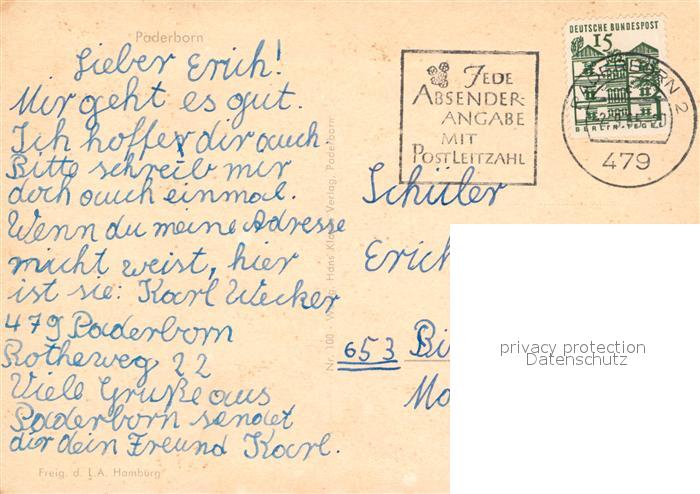 Paderborn
Lieber Erich!
Mir geht es gut.
Ich hoffe, dir auch.
Bitte schreib mir
doch auch einmal.
Wenn du meine Adresse
nicht weist, hier
ist sie: Karl Wecker
479 Paderborn
Rotheweg 22
Viele Gruße aus
Paderborn sendet
dir dein Freund Karl.
Freig. d. L.A. Hamburg
Nr. 100 Verlag, Hans Verlag, Paderborn
JEDE
ABSENDER-
ANGABE
MIT
POSTLEITZAHL
DEUTSCHE BUNDESPOST
15
BERLIN-TEGEL
PADERBORN 2
479
Schüler
Erich
653 Bi
Mo
privacy protection
Datenschutz